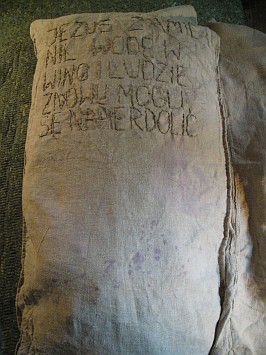 JEZUS ZAMIE
NIŁ WODĘ W
WINO I LUDZIE
ZNOWU MOGLI
SIĘ NAPIERDOLIĆ